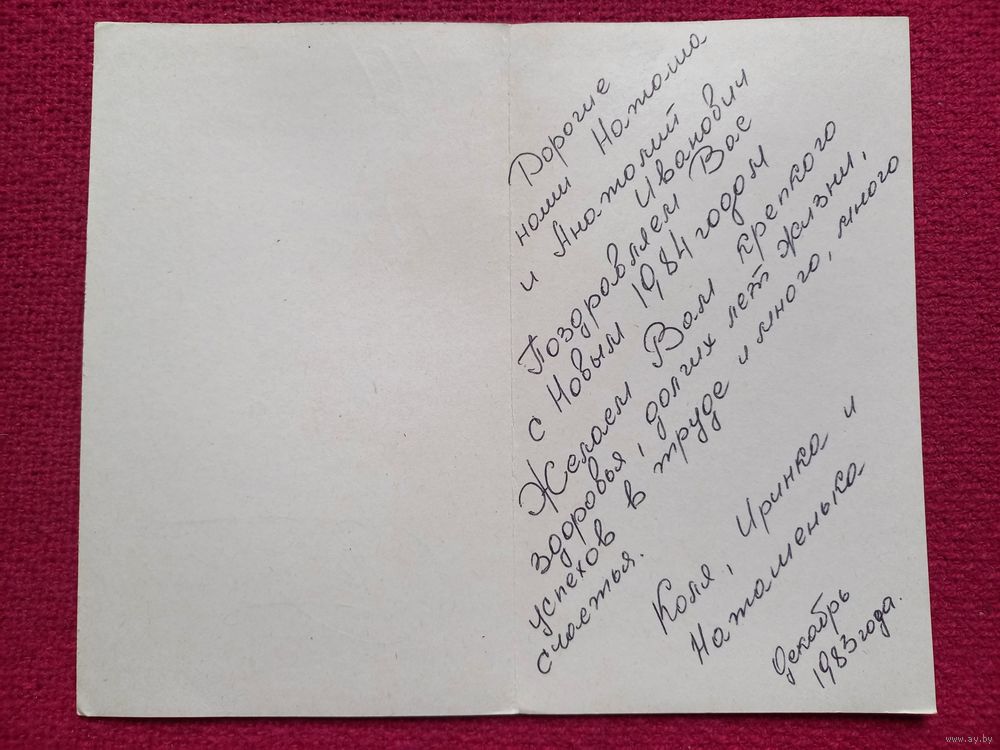 Дорогие
наши Наташа
и Анатолий
Иванович
Поздравляем Вас
с Новым 1984 годом
Желаем Вам крепкого
здоровья, долгих лет жизни,
успехов в труде и много, много
счастья.
Коля, Иринка и
Наташенька
Декабрь
1983 года.
www.ay.by